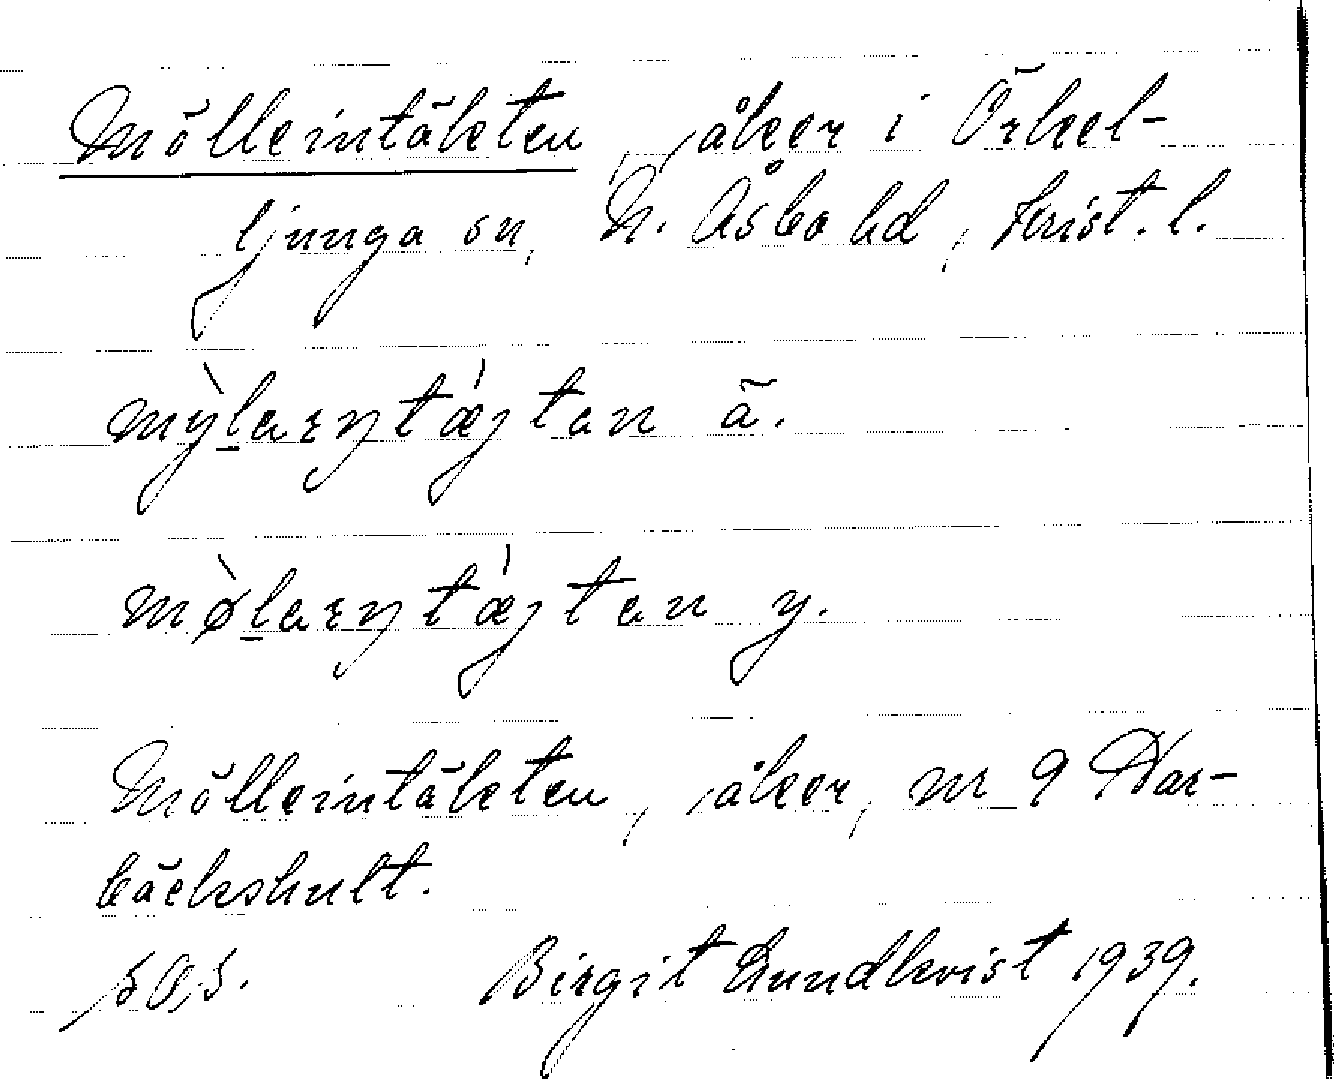 Mölleintäkten, åker i Örkel-
ljunga sn, N. Åsbo hd, Krist. l.
mỳlarŋtǽjtan ä.
mø̀larŋtǽjtan y.
Mölleintäkten, åker, nr 9 Har-
bäckshult.
s. 0, s. Birgit Lundkvist 1939.